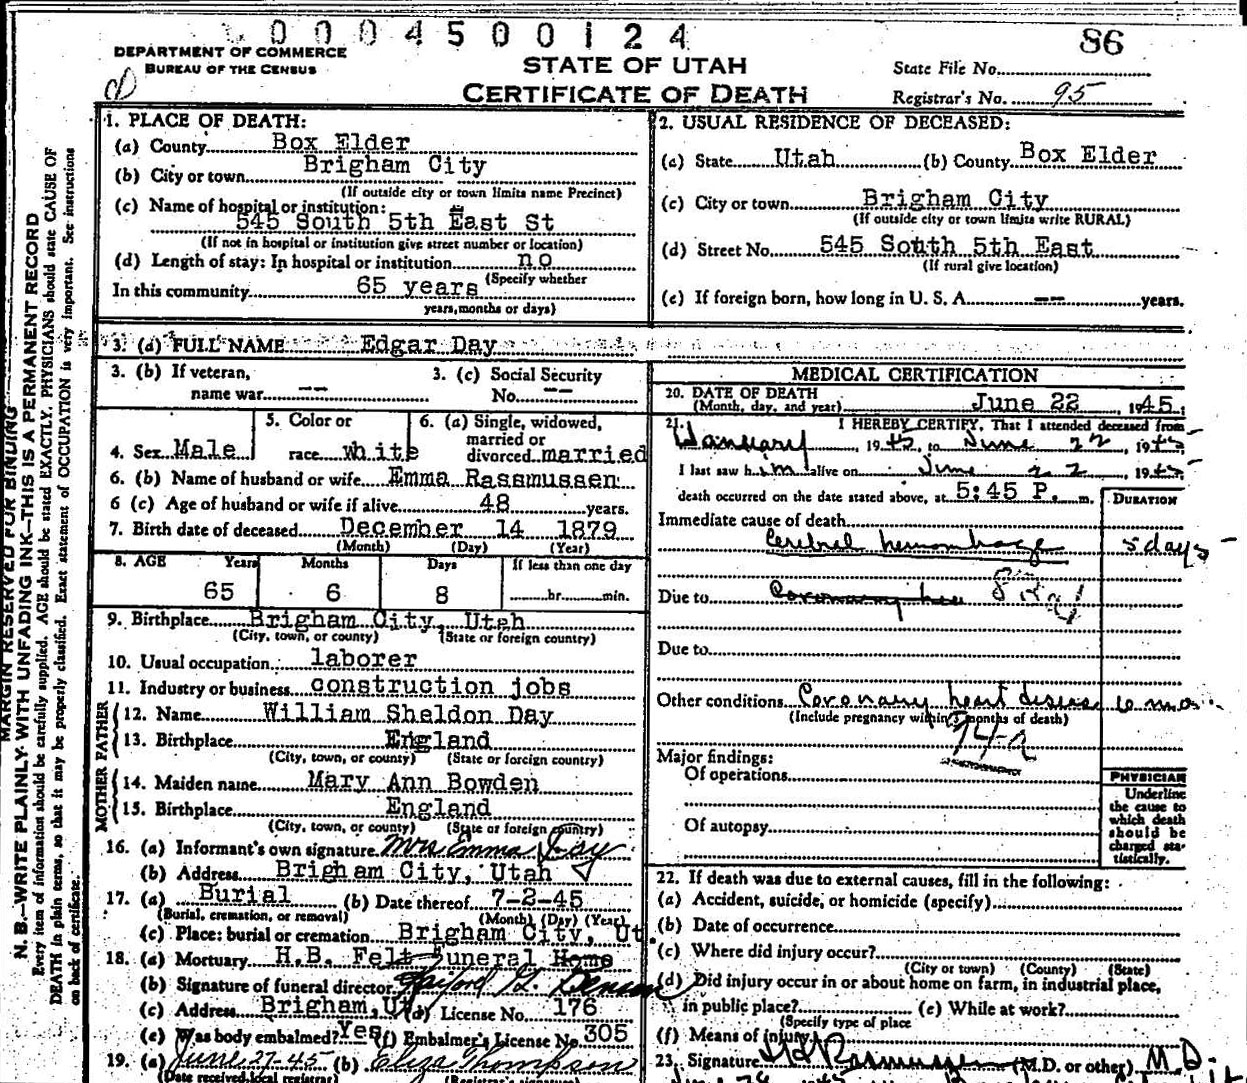 0004500124
86
DEPARTMENT OF COMMERCE
BUREAU OF THE CENSUS
STATE OF UTAH
CERTIFICATE OF DEATH
State File No.
Registrar's No. 95
MARGIN RESERVED FOR BINDING
N. B.—WRITE PLAINLY WITH UNFADING INK—THIS IS A PERMANENT RECORD
Every item of information should be carefully supplied. AGE should be stated EXACTLY. PHYSICIANS should state CAUSE OF
DEATH in plain terms, so that it may be properly classified. Exact statement of OCCUPATION is very important. See instructions
on back of certificate.
1. PLACE OF DEATH:
(a) County Box Elder
(b) City or town Brigham City
(If outside city or town limits name Precinct)
(c) Name of hospital or institution:
545 South 5th East St
(If not in hospital or institution give street number or location)
(d) Length of stay: In hospital or institution no
(Specify whether
In this community 65 years
years, months or days)
2. USUAL RESIDENCE OF DECEASED:
(a) State Utah (b) County Box Elder
(c) City or town Brigham City
(If outside city or town limits write RURAL)
(d) Street No. 545 South 5th East
(If rural give location)
(e) If foreign born, how long in U. S. A. -- years.
3. (a) FULL NAME Edgar Day
3. (b) If veteran, name war --
3. (c) Social Security No. --
4. Sex Male
5. Color or race White
6. (a) Single, widowed, married or divorced married
6. (b) Name of husband or wife Emma Rassmussen
6 (c) Age of husband or wife if alive 48 years.
7. Birth date of deceased December 14 1879
(Month) (Day) (Year)
8. AGE Years Months Days If less than one day
65 6 8 hr. min.
9. Birthplace Brigham City, Utah
(City, town, or county) (State or foreign country)
10. Usual occupation laborer
11. Industry or business construction jobs
FATHER
12. Name William Sheldon Day
13. Birthplace England
(City, town, or county) (State or foreign country)
MOTHER
14. Maiden name Mary Ann Bowden
15. Birthplace England
(City, town, or county) (State or foreign country)
16. (a) Informant's own signature Mrs Emma Day
(b) Address Brigham City, Utah
17. (a) Burial (b) Date thereof 7-2-45
(Burial, cremation, or removal) (Month) (Day) (Year)
(c) Place: burial or cremation Brigham City, Ut.
18. (a) Mortuary H.B. Felt Funeral Home
(b) Signature of funeral director
(c) Address Brigham, Ut (d) License No. 176
(e) Was body embalmed? Yes (f) Embalmer's License No. 305
19. (a) June 27-45 (b) Eliza Thompson
(Date received local registrar) (Registrar's signature)
MEDICAL CERTIFICATION
20. DATE OF DEATH
(Month, day, and year) June 22, 1945.
21. I HEREBY CERTIFY, That I attended deceased from
January 1945, to June 22, 1945
I last saw him alive on June 22, 1945
death occurred on the date stated above, at 5:45 P. m.
DURATION
Immediate cause of death
Cerebral hemorrhage 5 days
Due to Coronary
Due to
Other conditions Coronary heart disease 6 mos.
(Include pregnancy within 3 months of death)
94-a
Major findings:
Of operations
Of autopsy
PHYSICIAN
Underline
the cause to
which death
should be
charged sta-
tistically.
22. If death was due to external causes, fill in the following:
(a) Accident, suicide, or homicide (specify)
(b) Date of occurrence
(c) Where did injury occur?
(City or town) (County) (State)
(d) Did injury occur in or about home on farm, in industrial place,
in public place? (e) While at work?
(Specify type of place
(f) Means of injury
23. Signature Rasmussen (M.D. or other) M.D.